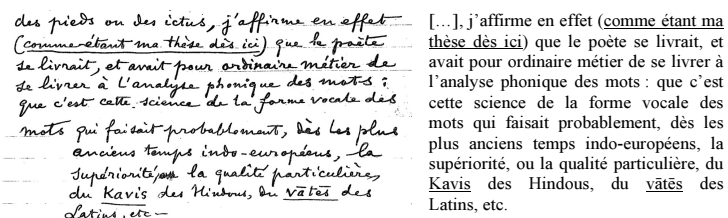 des pieds ou des ictus, j'affirme en effet
(comme étant ma thèse dès ici) que le poète
se livrait, et avait pour ordinaire métier de
se livrer à l'analyse phonique des mots :
que c'est cette science de la forme vocale des
mots qui faisait probablement, dès les plus
anciens temps indo-européens, la
supériorité, ou la qualité particulière,
du Kavis des Hindous, du vātēs des
Latins, etc —
[…], j'affirme en effet (comme étant ma
thèse dès ici) que le poète se livrait, et
avait pour ordinaire métier de se livrer à
l'analyse phonique des mots : que c'est
cette science de la forme vocale des
mots qui faisait probablement, dès les
plus anciens temps indo-européens, la
supériorité, ou la qualité particulière, du
Kavis des Hindous, du vātēs des
Latins, etc.